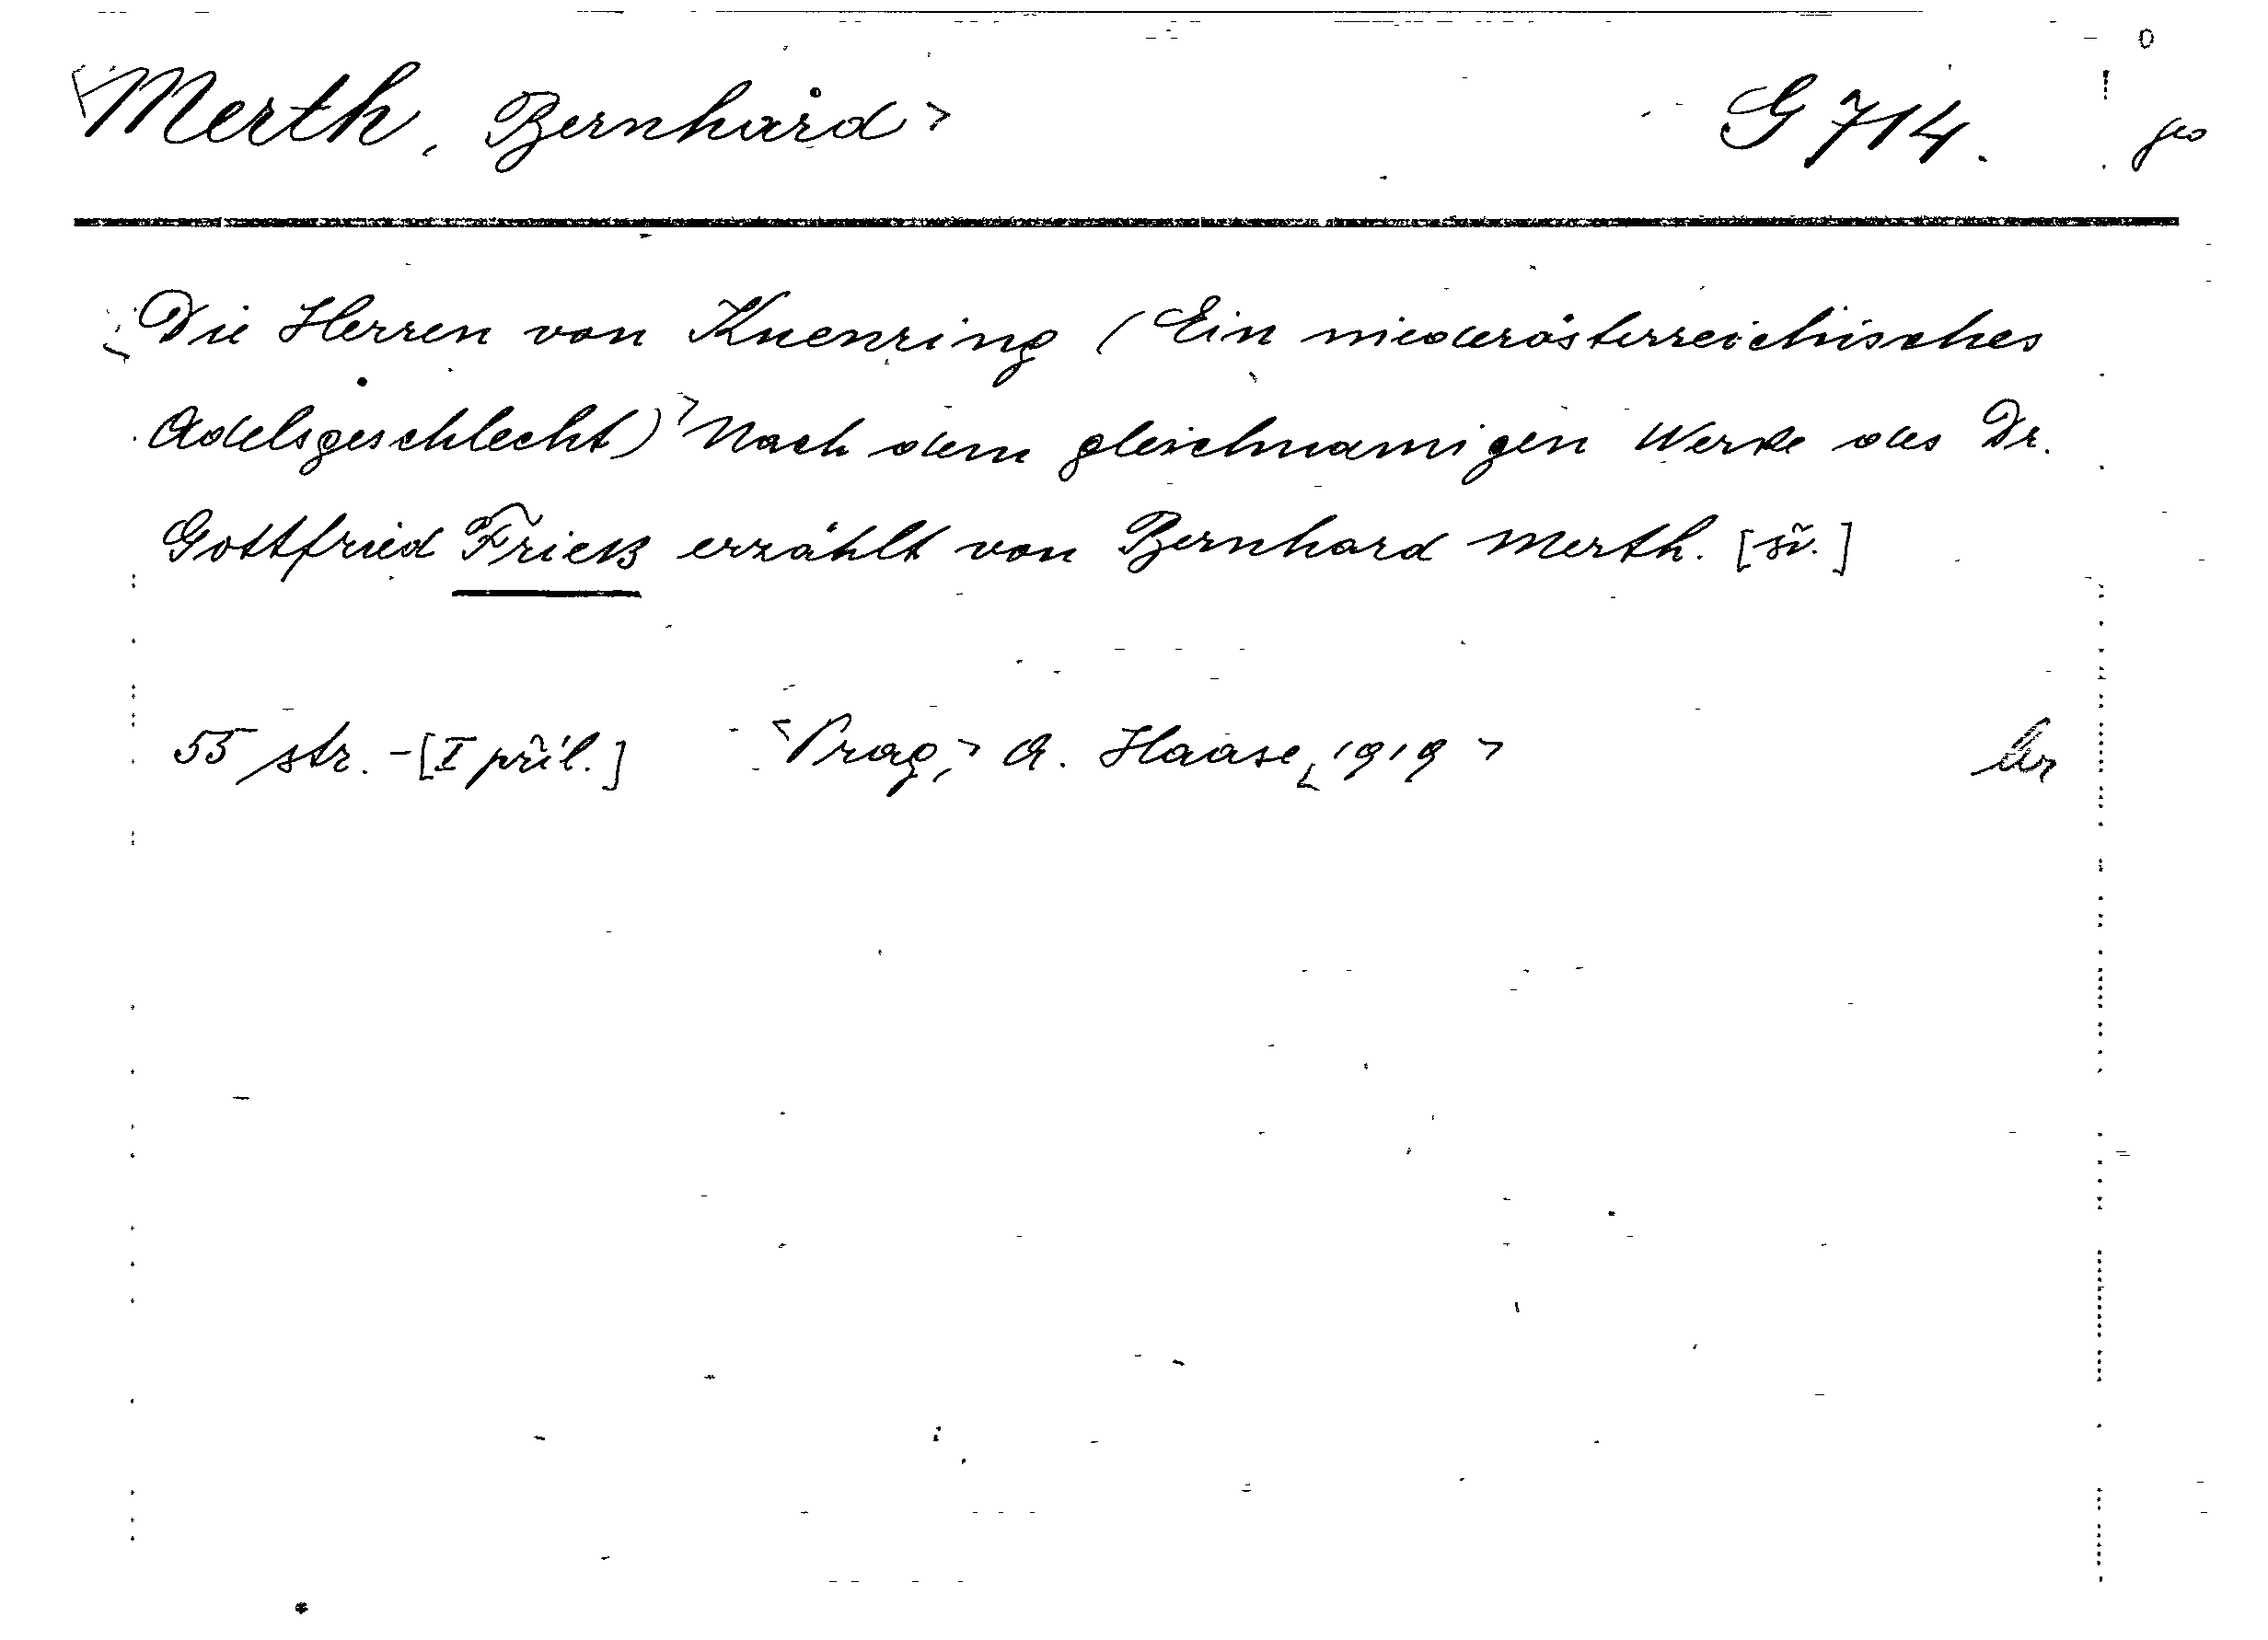 Merth, Bernhard G 714.
Die Herren von Kuenring (Ein niederösterreichisches
Adelsgeschlecht) Nach dem gleichnamigen Werke des Dr.
Gottfried Frieß erzählt von Bernhard Merth.
55 str. - [I příl.] Prag, A. Haase, 1919